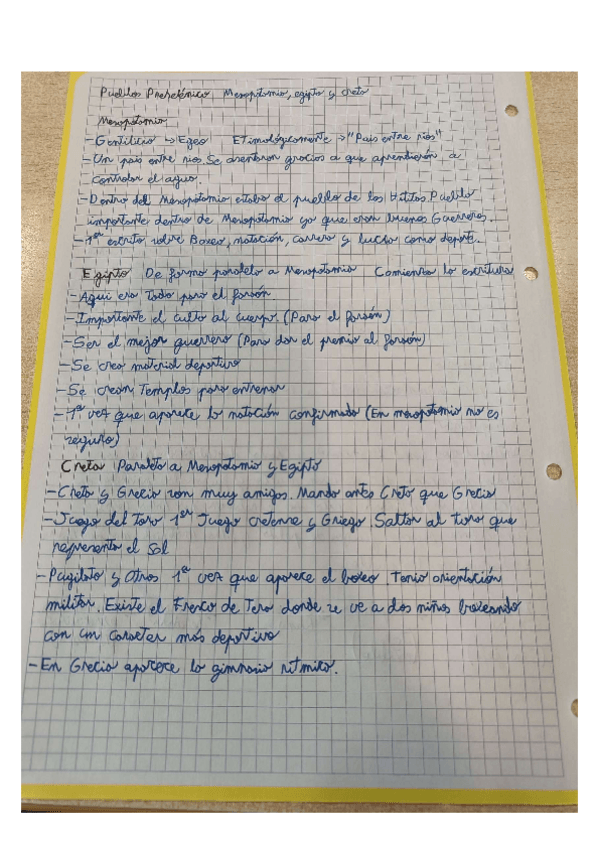 Pueblos Prehelénico Mesopotamia, egipto y creta
Mesopotamia
- Gentilicio → Egeo Etimológicamente → "Pais entre rios"
- Un pais entre rios. Se asentaron gracias a que aprendieron a
controlar el agua.
- Dentro del Mesopotamia estaba el pueblo de los Hititas. Pueblo
importante dentro de Mesopotamia ya que eran buenos Guerreros.
- 1er escrito sobre Boxeo, natación, carrera y lucha como deporte.
Egipto De forma paralela a Mesopotamia Comienza la escritura
- Aqui era Todo para el faraón
- Importante el culto al cuerpo. (Para el faraón)
- Ser el mejor guerrero (Para dar el premio al faraón)
- Se crea material deportivo
- Se crean Templos para entrenar
- 1ª vez que aparece la natación confirmada (En mesopotamia no es
seguro)
Creta Paralela a Mesopotamia y Egipto
- Creta y Grecia son muy amigos. Manda antes Creta que Grecia
- Juego del Toro 1er Juego cretense y Griego. Saltar al toro que
representa el sol
- Pugilato y Otros 1ª vez que aparece el boxeo. Tenia orientación
militar. Existe el Fresco de Tera donde se ve a dos niños boxeando
con un caracter más deportivo
- En Grecia aparece la gimnasia ritmica.